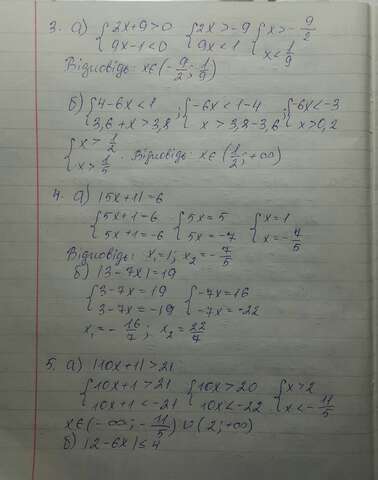 3. а) { 2x+9>0 { 2x>-9 { x>-9/2
9x-1<0 9x<1 x<1/9
Відповідь: x∈(-9/2; 1/9)
б) { 4-6x<1 ; { -6x<1-4 ; { -6x<-3
3,6+x>3,8 x>3,8-3,6 x>0,2
{ x>1/2
x>1/5 . Відповідь: x∈(1/2; +∞)
4. а) |5x+1|=6
{ 5x+1=6 { 5x=5 { x=1
5x+1=-6 5x=-7 x=-7/5
Відповідь: x₁=1; x₂=-7/5
б) |3-7x|=19
{ 3-7x=19 { -7x=16
3-7x=-19 -7x=-22
x₁=-16/7; x₂=22/7
5. а) |10x+1|>21
{ 10x+1>21 { 10x>20 { x>2
10x+1<-21 10x<-22 x<-11/5
x∈(-∞; -11/5)∪(2; +∞)
б) |2-6x|≤4